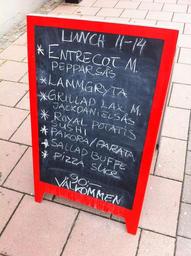 LUNCH 11-14
* ENTRECOT M.
PEPPARSÅS
* LAMMGRYTA
* GRILLAD LAX M.
VÄCKDANIELSÅS
* ROYAL POTATIS
* SUSHI
* PAKORA/PARATA
* SALLAD BUFFE
* PIZZA SLICE
90:-
VÄLKOMMEN